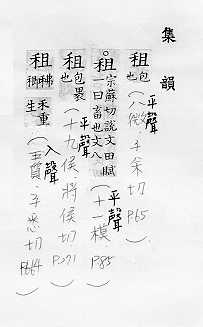 集韻
租 包也 平聲(八微:子余切 P65)
租 宗蘇切說文田賦一曰畜也文八 平聲(十一模 P85)
租 包畏也 平聲(十九侯:將侯切 P271)
租 稀租禾重生 入聲(五質:子悉切 P664)